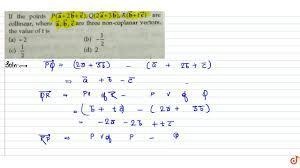 If the points P(a̅+2b̅+c̅), Q(2a̅+3b̅), R(b̅+tc̅) are
collinear, where a̅, b̅, c̅ are three non-coplanar vectors,
the value of t is
(a) −2 (b) −1/2
(c) 1/2 (d) 2
Soln→ P̅Q̅ = (2a̅ + 3b̅) − (a̅ + 2b̅ + c̅)
⇒ a̅ + b̅ − c̅
Q̅R̅ = PV of R − P V of Q
= (b̅ + tc̅) − (2a̅ + 3b̅)
= −2a̅ − 2b̅ + tc̅
R̅P̅ = P V of P −